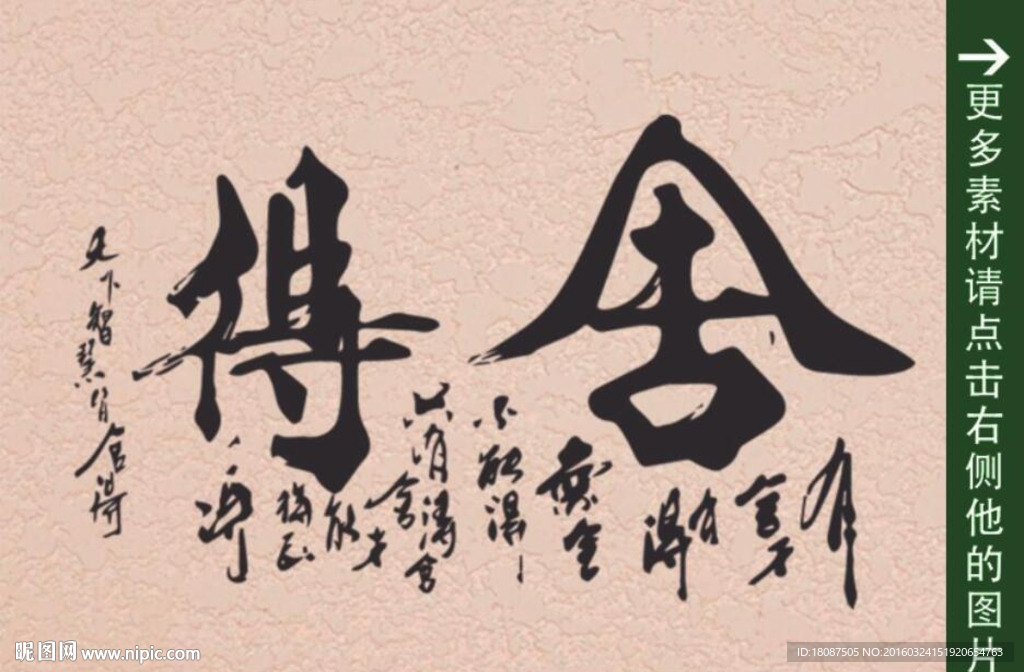 舍得
有舍才有得
不能得
只有
舍得舍
才能
得
天下智慧皆舍得
→更多素材请点击右侧他的图片
昵图网 www.nipic.com
ID:18087505 NO:20160324151920634763